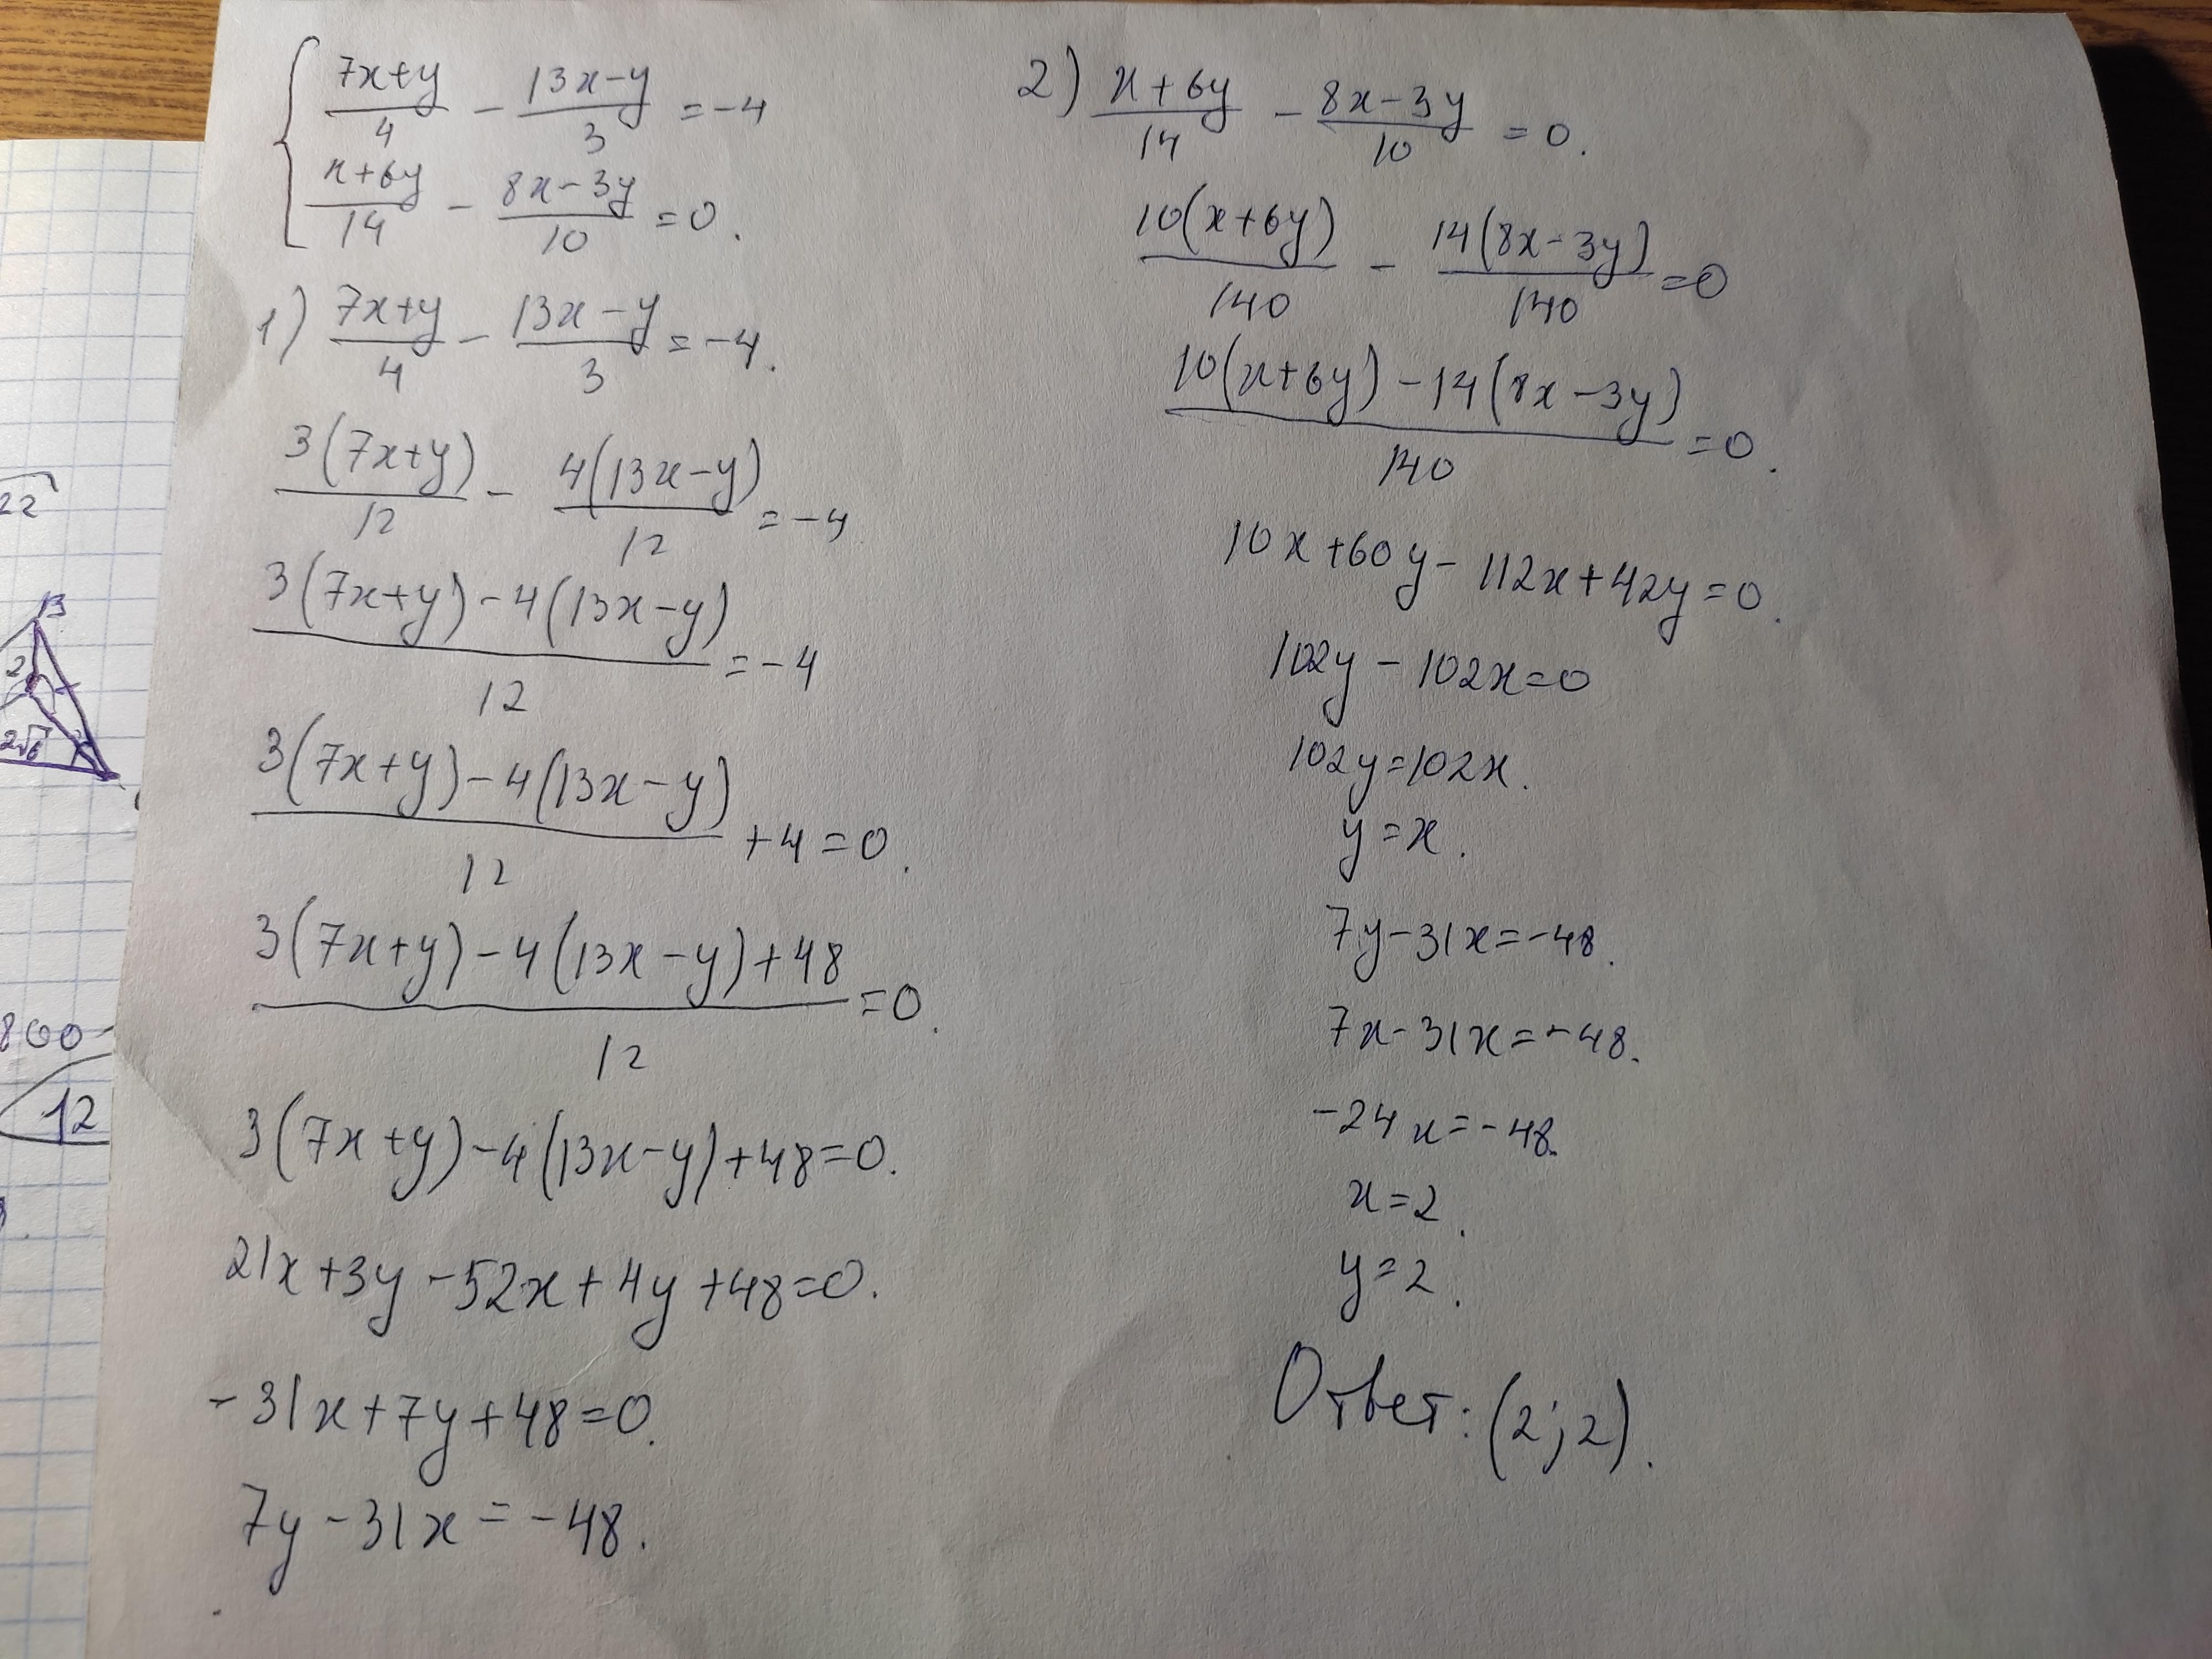 { (7x+y)/4 - (13x-y)/3 = -4
(x+6y)/14 - (8x-3y)/10 = 0.
1) (7x+y)/4 - (13x-y)/3 = -4.
3(7x+y)/12 - 4(13x-y)/12 = -4
(3(7x+y)-4(13x-y))/12 = -4
(3(7x+y)-4(13x-y))/12 +4=0.
(3(7x+y)-4(13x-y)+48)/12 =0.
3(7x+y)-4(13x-y)+48=0.
21x+3y-52x+4y+48=0.
-31x+7y+48=0.
7y-31x=-48.
2) (x+6y)/14 - (8x-3y)/10 = 0.
10(x+6y)/140 - 14(8x-3y)/140 = 0
(10(x+6y)-14(8x-3y))/140 =0.
10x+60y-112x+42y=0.
102y-102x=0
102y=102x.
y=x.
7y-31x=-48.
7x-31x=-48.
-24x=-48.
x=2.
y=2.
Ответ: (2;2).
22
13
2
2√6
800
12